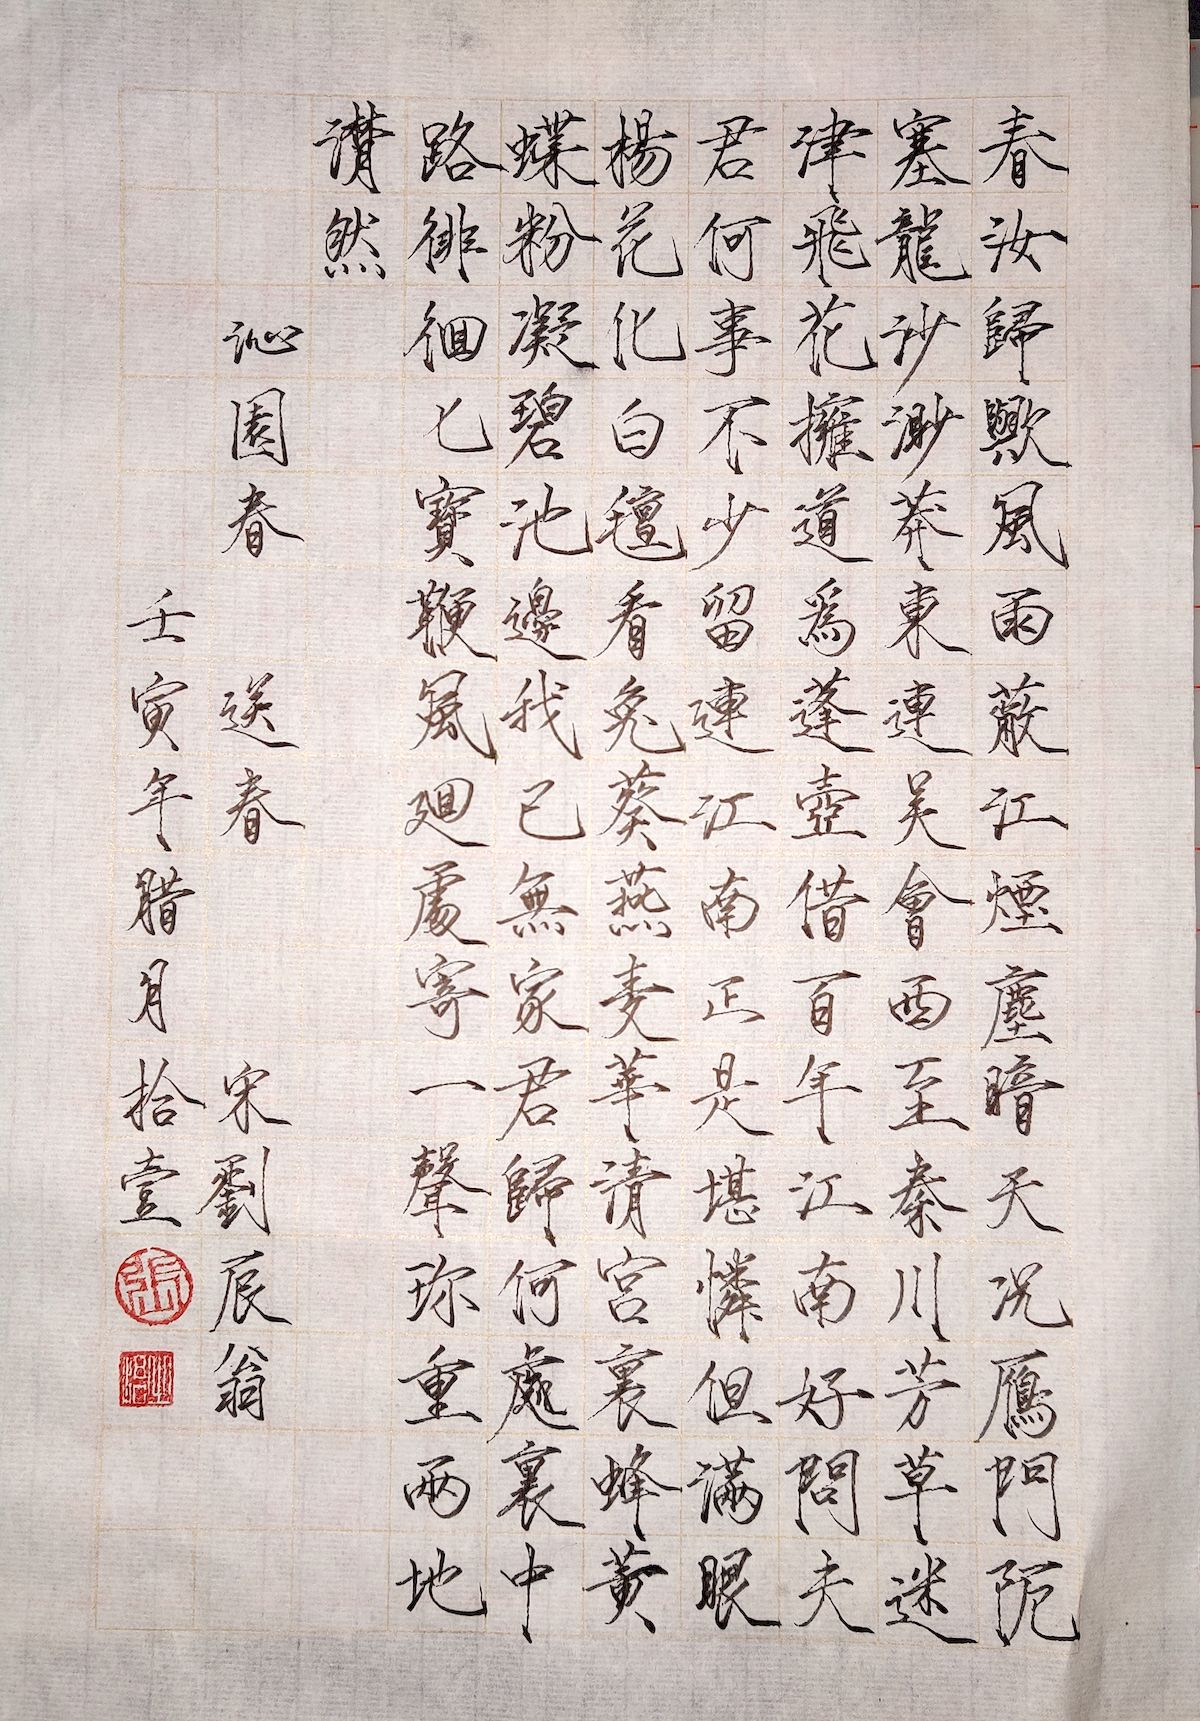 春汝歸歟風雨蔽江煙塵暗天況鴈門阨
塞龍沙渺莽東連吳會西至秦川芳草迷
津飛花擁道爲蓬壺借百年江南好問夫
君何事不少留連江南正是堪憐但滿眼
楊花化白氊看兔葵燕麥華清宮裏蜂黃
蝶粉凝碧池邊我已無家君歸何處裏中
路徘徊七寶鞭風廻處寄一聲珍重兩地
潸然
沁園春 送春 宋劉辰翁
壬寅年腊月拾壹